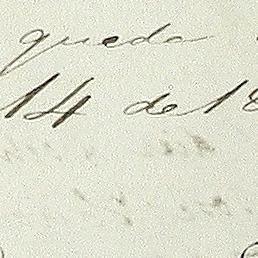 queda
14 de 18